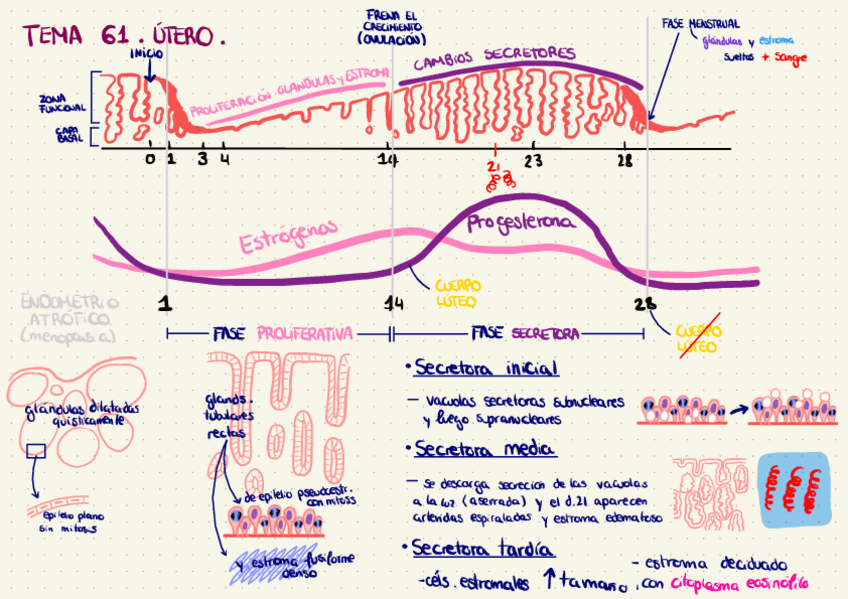 TEMA 61. ÚTERO.
INICIO
FRENA EL
CRECIMIENTO
(OVULACIÓN)
FASE MENSTRUAL
glándulas y estroma
sueltos + sangre
ZONA
FUNCIONAL
CAPA
BASAL
PROLIFERACIÓN GLÁNDULAS Y ESTROMA
CAMBIOS SECRETORES
0 1 3 4 14 21 23 28
Estrógenos
Progesterona
CUERPO
LÚTEO
1 14 28
FASE PROLIFERATIVA
FASE SECRETORA
CUERPO
LÚTEO
ENDOMETRIO
ATRÓFICO
(menopausia)
glándulas dilatadas
quísticamente
epitelio plano
sin mitosis
glands.
tubulares
rectas
de epitelio pseudoestr.
con mitosis
y estroma fusiforme
denso
• Secretora inicial
— vacuolas secretoras subnucleares
y luego supranucleares
• Secretora media
— se descarga secreción de las vacuolas
a la luz (aserrada) y el d.21 aparecen
arteriolas espiraladas y estroma edematoso
• Secretora tardía
- céls. estromales ↑ tamaño, con citoplasma eosinófilo
- estroma deciduado